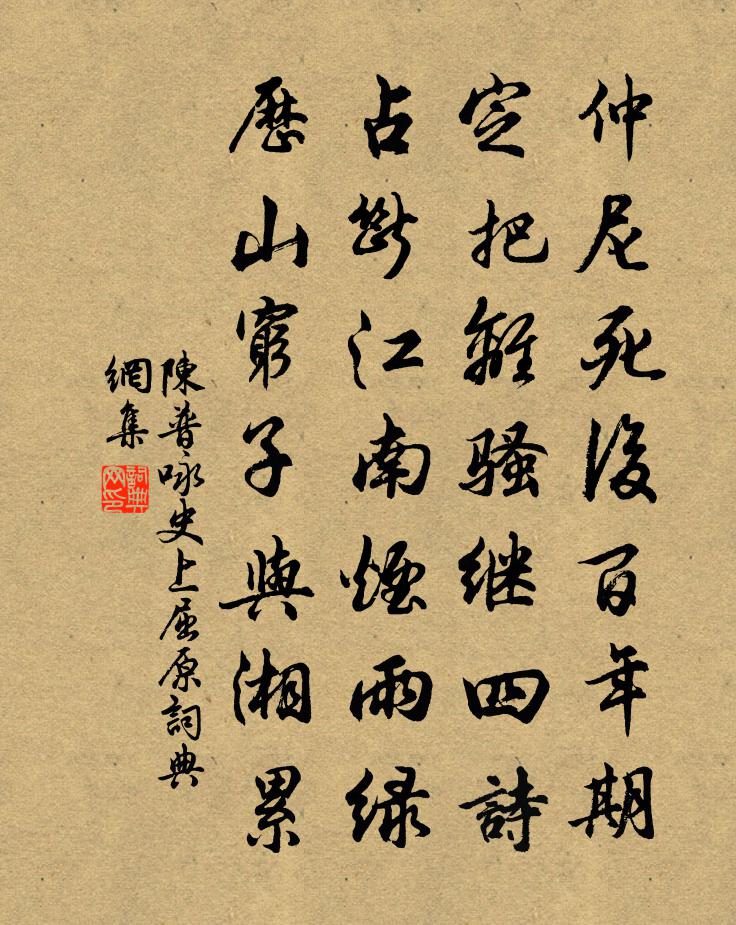 仲尼死後百年期
定把離騷继四詩
占斷江南煙雨绿
歷山窮子與湘累
陳普咏史上屈原詞典
網集
詞典网印